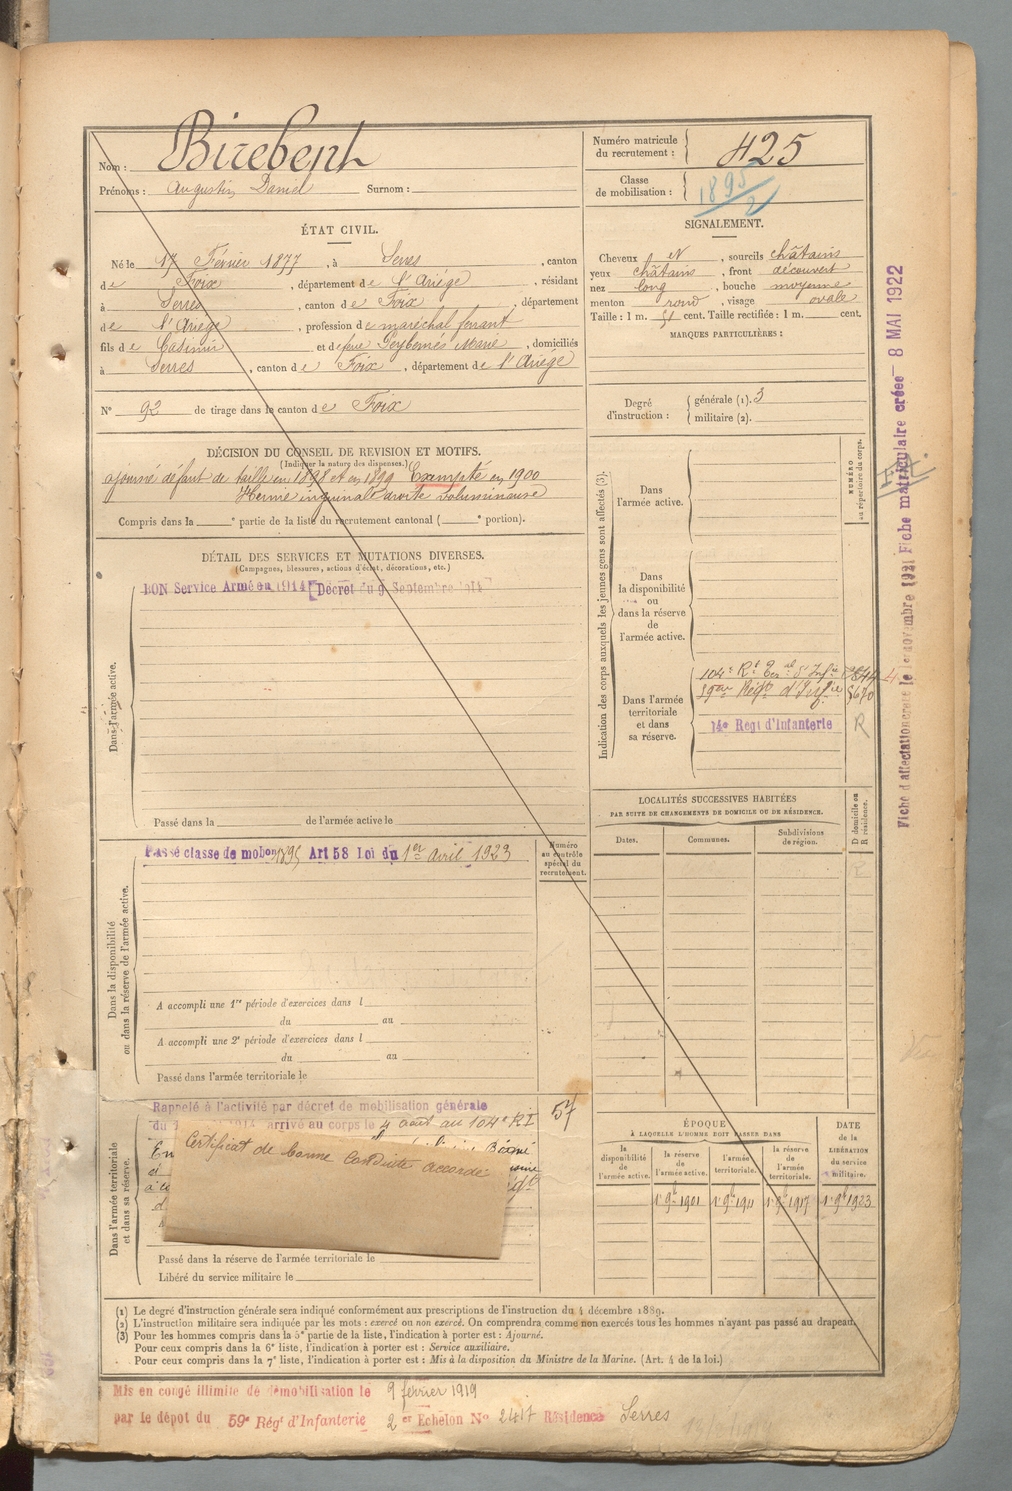 Nom : Birebent
Prénoms : Augustin Daniel Surnom :
Numéro matricule du recrutement : 425
Classe de mobilisation : 1895/2
ÉTAT CIVIL.
Né le 17 Février 1877, à Serres, canton
de Foix, département de l'Ariége, résidant
à Serres, canton de Foix, département
de l'Ariége, profession de maréchal ferrant
fils de Casimir et de feue Peybernés Marie, domiciliés
à Serres, canton de Foix, département de l'Ariége
N° 92 de tirage dans le canton de Foix
SIGNALEMENT.
Cheveux et, sourcils châtains
yeux châtains, front découvert
nez long, bouche moyenne
menton rond, visage ovale
Taille : 1 m. 51 cent. Taille rectifiée : 1 m. cent.
MARQUES PARTICULIÈRES :
Degré d'instruction : générale (1). 3
militaire (2).
DÉCISION DU CONSEIL DE REVISION ET MOTIFS.
(Indiquer la nature des dispenses.)
ajourné défaut de taille en 1898 et en 1899 Exempté en 1900
Hernie inguinale droite volumineuse
Compris dans la e partie de la liste du recrutement cantonal ( e portion).
DÉTAIL DES SERVICES ET MUTATIONS DIVERSES.
(Campagnes, blessures, actions d'éclat, décorations, etc.)
Dans l'armée active.
BON Service Armé en 1914 [Décret du 9 Septembre 1914
Passé dans la de l'armée active le
Indication des corps auxquels les jeunes gens sont affectés (3).
NUMÉRO au répertoire du corps.
Dans l'armée active.
Dans la disponibilité ou dans la réserve de l'armée active.
Dans l'armée territoriale et dans sa réserve.
104e Rt
59me Régt d'Infie 5670
14e Regt d'Infanterie R
LOCALITÉS SUCCESSIVES HABITÉES
PAR SUITE DE CHANGEMENTS DE DOMICILE OU DE RÉSIDENCE.
Dates. Communes. Subdivisions de région.
D domicile ou R résidence.
R
Dans la disponibilité ou dans la réserve de l'armée active.
Passé classe de mobon 1895 Art 58 Loi du 1er avril 1923
Numéro au contrôle spécial du recrutement.
A accompli une 1re période d'exercices dans l
du au
A accompli une 2e période d'exercices dans l
du au
Passé dans l'armée territoriale le
Dans l'armée territoriale et dans sa réserve.
Rappelé à l'activité par décret de mobilisation générale
du arrivé au corps le 4 août au 104e RI
57
Certificat de bonne conduite accordé
Passé dans la réserve de l'armée territoriale le
Libéré du service militaire le
ÉPOQUE
À LAQUELLE L'HOMME DOIT PASSER DANS
la disponibilité de l'armée active.
la réserve de l'armée active.
l'armée territoriale.
la réserve de l'armée territoriale.
DATE de la LIBÉRATION du service militaire.
1r 9bre 1901 1r 9bre 1911 1r 9bre 1917 1r 9bre 1923
(1) Le degré d'instruction générale sera indiqué conformément aux prescriptions de l'instruction du 4 décembre 1889.
(2) L'instruction militaire sera indiquée par les mots : exercé ou non exercé. On comprendra comme non exercés tous les hommes n'ayant pas passé au drapeau.
(3) Pour les hommes compris dans la 5e partie de la liste, l'indication à porter est : Ajourné.
Pour ceux compris dans la 6e liste, l'indication à porter est : Service auxiliaire.
Pour ceux compris dans la 7e liste, l'indication à porter est : Mis à la disposition du Ministre de la Marine. (Art. 4 de la loi.)
Mis en congé illimité de démobilisation le 9 février 1919
par le dépôt du 59e Régt d'Infanterie 2er Echelon No 2417 Résidence Serres
Fiche d'affectation créée le 1er novembre 1921 Fiche matriculaire créée 8 MAI 1922